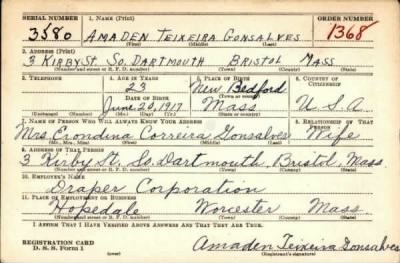 SERIAL NUMBER 1. Name (Print) ORDER NUMBER
3580 AMADEN TEIXEIRA GONSALVES 1368
(First) (Middle) (Last)
2. Address (Print)
3 KIRBY ST. SO. DARTMOUTH BRISTOL MASS
(Number and street or R. F. D. number) (Town) (County) (State)
3. Telephone 4. Age in Years 5. Place of Birth 6. Country of Citizenship
23 New Bedford
(Town or county)
Date of Birth
June 20, 1917 Mass U.S.A
(Exchange) (Number) (Mo.) (Day) (Yr.) (State or country)
7. Name of Person Who Will Always Know Your Address 8. Relationship of That Person
Mrs Erondina Correira Gonsalves Wife
(Mr., Mrs., Miss) (First) (Middle) (Last)
9. Address of That Person
3 Kirby St, So. Dartmouth, Bristol, Mass.
(Number and street or R. F. D. number) (Town) (County) (State)
10. Employer's Name
Draper Corporation
11. Place of Employment or Business
Hopedale Worcester Mass.
(Number and street or R. F. D. number) (Town) (County) (State)
I Affirm That I Have Verified Above Answers and That They Are True.
REGISTRATION CARD
D. S. S. Form 1 (over) Amaden Teixeira Gonsalves
(Registrant's signature)